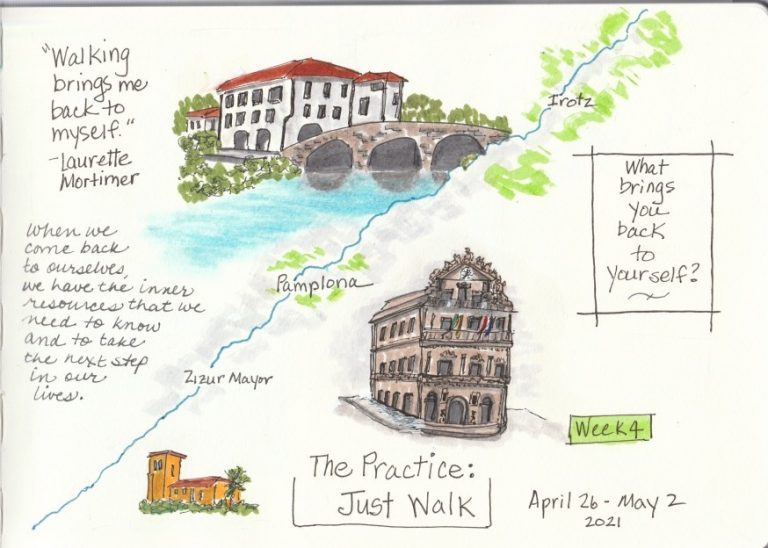 "Walking
brings me
back to
myself."
-Laurette
Mortimer
When we
come back
to ourselves,
we have the inner
resources that we
need to know
and to take
the next step
in our
lives.
Irotz
What
brings
you
back
to
yourself?
Pamplona
Zizur Mayor
Week 4
The Practice:
Just Walk
April 26 - May 2
2021